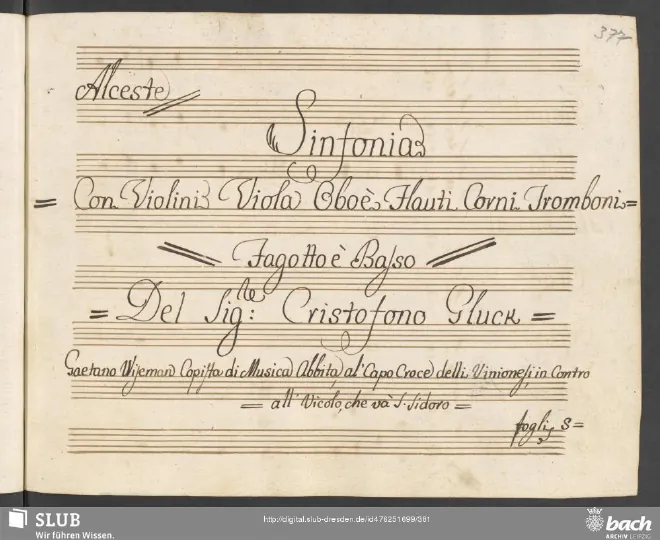 377
Alceste
Sinfonia
= Con Violini Viola Oboè Flauti Corni Tromboni =
Fagotto è Basso
= Del Sig:re Cristofono Gluck =
Gaetano Wiseman Copista di Musica Abbita, al' Capo Croce delli Vinionesi, in Contro
= all' Vicolo, che và S. Isidoro =
fogli 8=
SLUB
Wir führen Wissen.
http://digital.slub-dresden.de/id478251699/381
bach
ARCHIV LEIPZIG